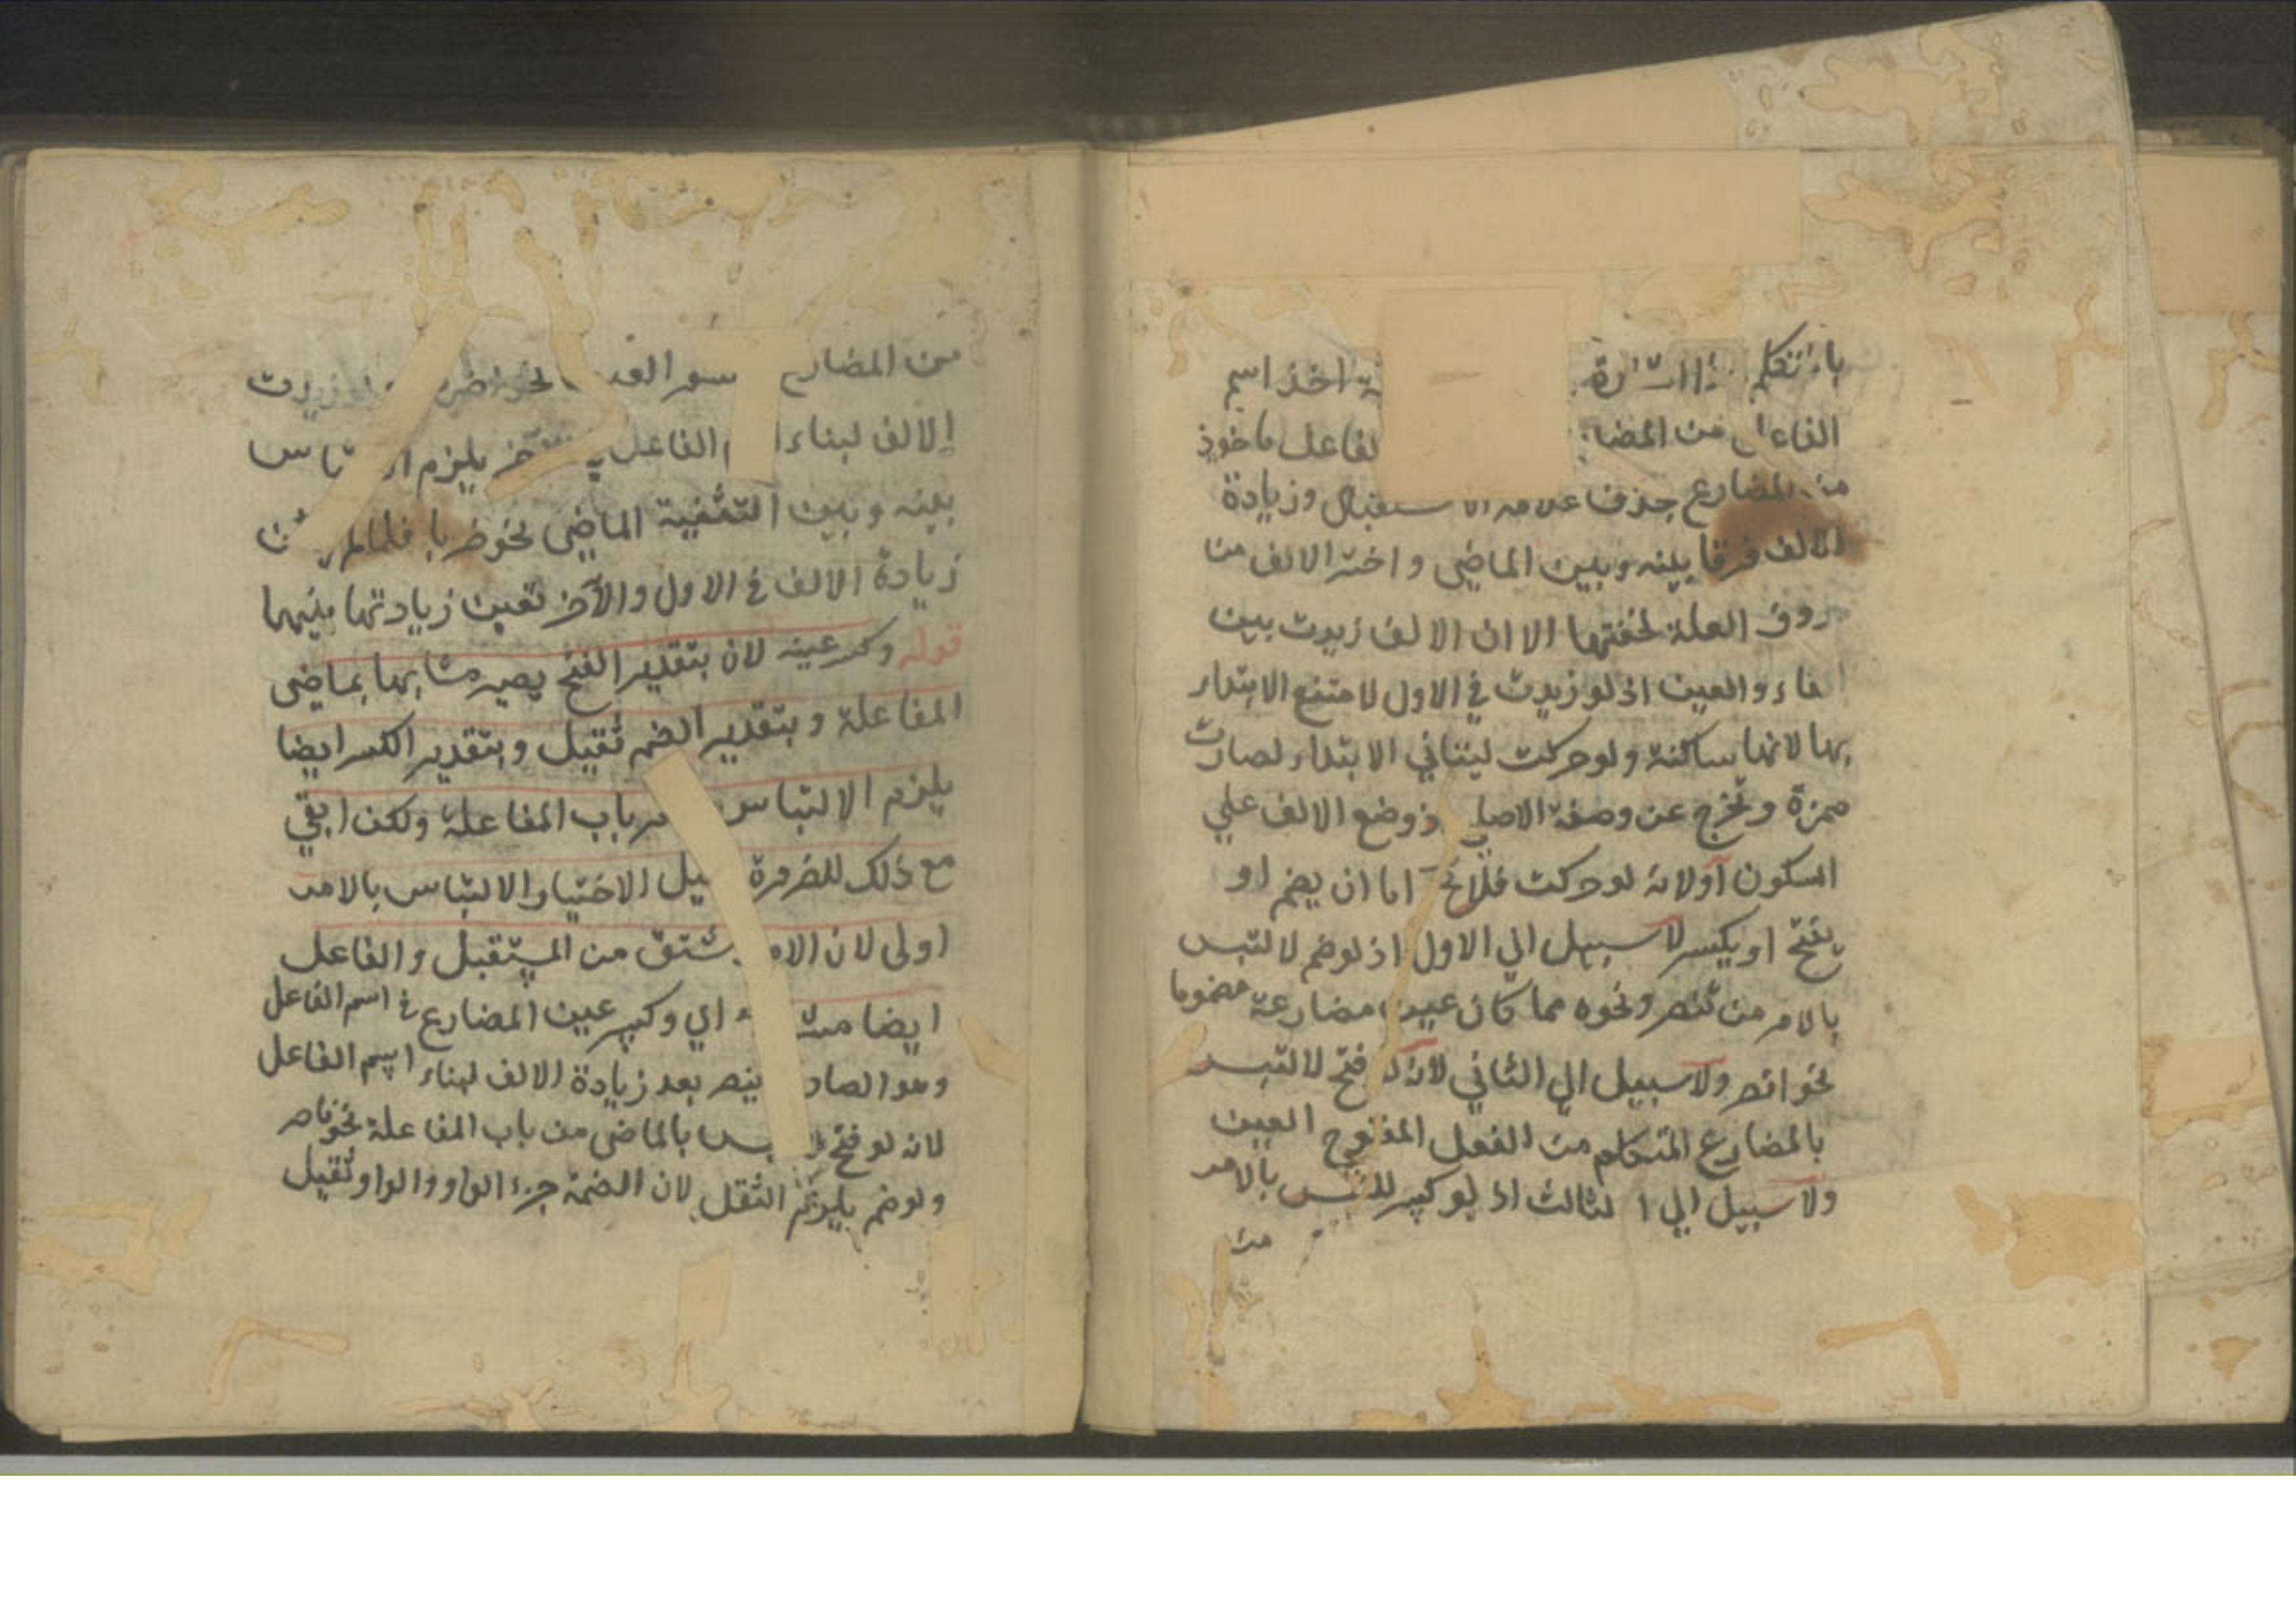 اخذ اسم
من لفاعل ماخوذ
من المضارع بحذف علامة الاستقبال وزيادة
الالف فرقا بينه وبين الماضي واختير الالف من
حروف العلة لخفتها الا ان الالف زيدت بين
الفاء والعين اذ لو زيدت في الاول لامتنع الابتداء
بها لانها ساكنة ولو حركت ليتأتي الابتداء لصارت
همزة وتخرج عن وصفه الاصلي اذ وضع الالف علي
السكون أولانه لو حركت فلا يخ اما ان يضم او
يفتح او يكسر لا سبيل الي الاول اذ لو ضم لالتبس
بالامر من تنصر ونحوه مما كان عين مضارعة مضموما
نحو انصر ولا سبيل الي الثاني لانه لو فتح لالتبس
بالمضارع المتكلم من الفعل المفتوح العين
ولا سبيل الي ا لثالث اذ لو كسر للتبس بالامر
من
من المضارع نحو اضرب زيدت
الالف لبناء الفاعل يلزم
بينه وبين التثنية الماضي نحو ضربا فلما لم
زيادة الالف في الاول والآخر تعين زيادتها بينهما
قوله وكسر عينه لان بتقدير الفتح يصير مشابها بماضي
المفاعلة وبتقدير الضم ثقيل وبتقدير الكسر ايضا
يلزم الالتباس باب المفاعلة ولكن ابقي
مع ذلك للضرورة قيل الاختيار الالتباس بالامر
اولى لان الامر مشتق من المستقبل والفاعل
ايضا اي وكسر عين المضارع في اسم الفاعل
وهو الصاد ينصر بعد زيادة الالف لبناء اسم الفاعل
لانه لو فتح بالماضي من باب المفاعلة نحو ناصر
ولو ضم يلزم الثقل لان الضمة جزء الواو والواو ثقيل